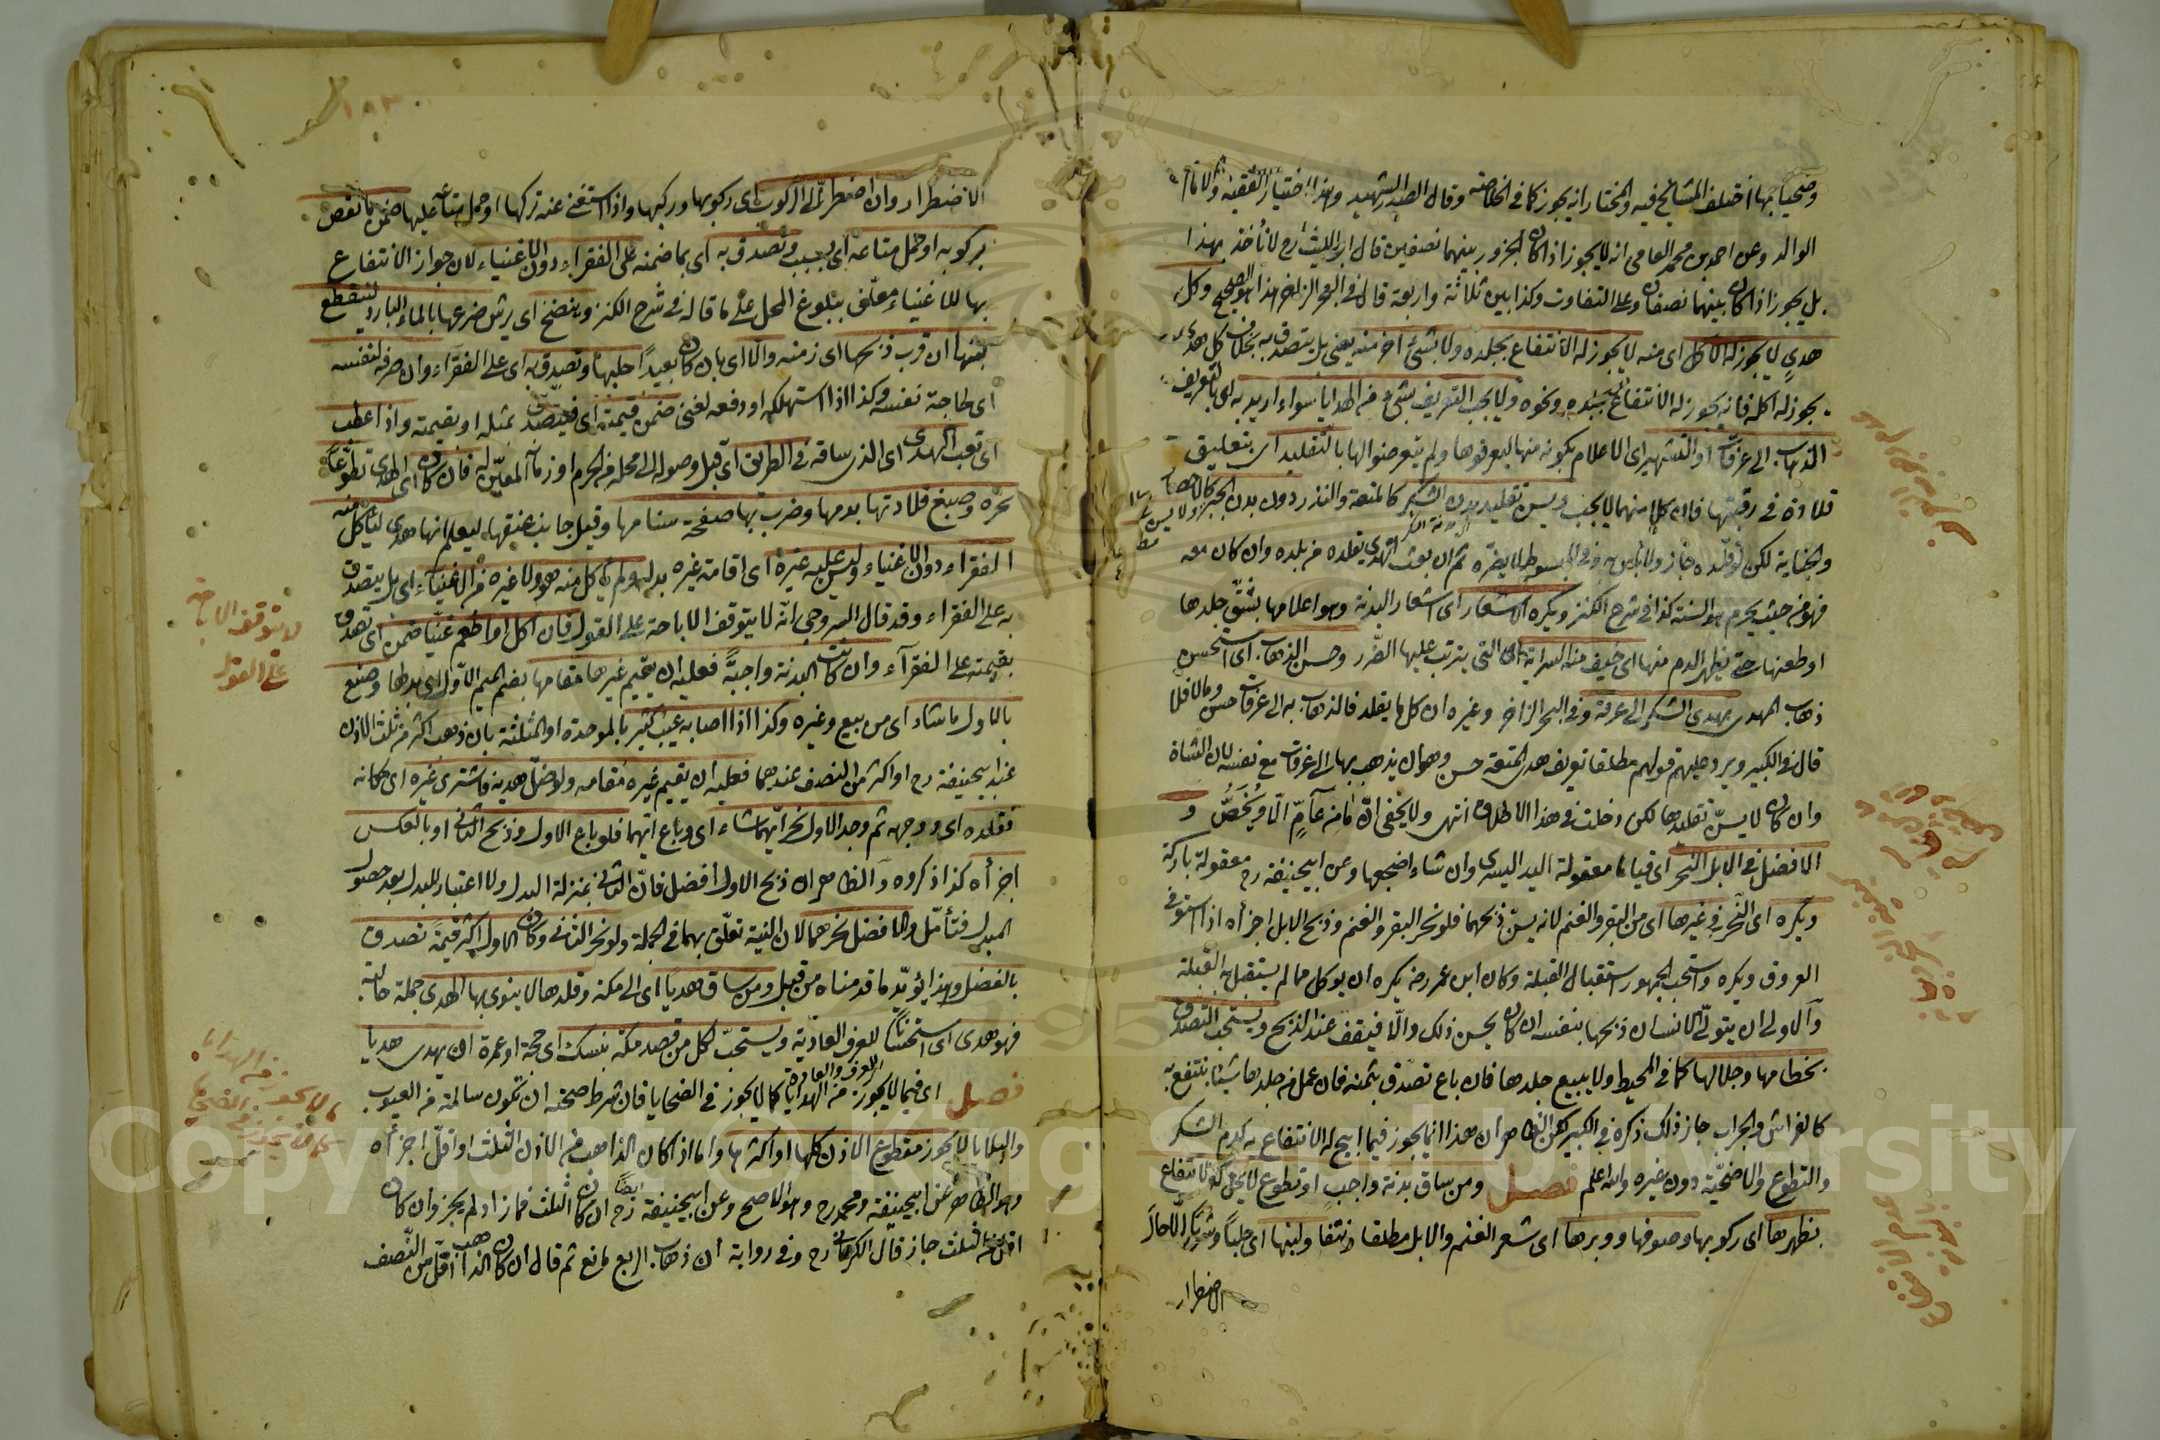 وضحيا بهما اختلف المشايخ فيه والمختار انه يجوز كما في الخلاصة وقال الصدر الشهيد وهذا اختيار الفقيه والامام
الوالد وعن احمد بن محمد العامي انه لا يجوز اذا كان الجزور بينهما نصفين قال ابو الليث رح لا نأخذ بهذا
بل يجوز اذا كان بينهما نصفان وعلى التفاوت وكذا بين ثلاثة واربعة قال في البحر الزاخر هذا هو الصحيح وكل
هدي لا يجوز له الاكل اي منه لا يجوز له الانتفاع بجلده ولا بشئ اخر منه يعني بل يتصدق به بخلاف كل هدي
يجوز له اكله فانه يجوز له الانتفاع بجلده ونحوه ولا يجب التعريف بشئ من الهدايا سواء اريد به اي بالتعريف
الذهاب الى عرفات او التشهير اي الاعلام بكونه منها ليعرفوها ولم يتعرضوا لها بالتقليد اي بتعليق
قلادة في رقبتها فان كلا منهما لا يجب ويسن تقليد بدن الشكر كالمتعة والنذر دون بدن الجبر كالاحصار
والجناية لكن لو قلده جاز ولا بأس به وفي المبسوط لا يضره ثم ان بعث الهدي يقلده من بلده وان كان معه
فهو من حيث يحرم هو السنة كذا في شرح الكنز ويكره الاشعار اي اشعار البدنة وهو اعلامها بشق جلدها
او طعنها حتى يظهر الدم منها اي خيف منه السراية اي التي يترتب عليها الضرر وحسن الذهاب اي استحسن
ذهاب المهدي بهدي الشكر الى عرفة وفي البحر الزاخر وغيره ان كل ما يقلد فالذهاب به الى عرفات حسن وما لا فلا
قال في الكبير ويرد عليهم قولهم مطلقا تعريف هدي المتعة حسن وهو ان يذهب بها الى عرفات مع نفسه لان الشاة
وان كان لا يسن تقليدها لكن دخلت في هذا الاطلاق انتهى ولا يخفى انه ما من عام الا ويخص و
الافضل في الابل النحر اي قياما معقولة اليد اليسرى وان شاء اضجعها وعن ابي حنيفة رح معقولة باركة
ويكره اي النحر في غيرها اي من البقر والغنم لانه يسن ذبحهما فلو نحر البقر والغنم وذبح الابل اجزأه اذا استوفى
العروق ويكره واستحب الجمهور استقبال القبلة وكان ابن عمر رضي يكره ان يوكل مما لم يستقبل به القبلة
والاولى ان يتولى الانسان ذبحها بنفسه ان كان يحسن ذلك والا فيقف عند الذبح ويستحب التصدق
بخطامها وجلالها كما في المحيط ولا يبيع جلدها فان باع تصدق بثمنه فان عمل من جلدها شيئا ينتفع به
كالفراش والجراب جاز ذلك ذكره في الكبير لكن الظاهر ان هذا انما يجوز فيما ابيح له الانتفاع به كدم الشكر
والتطوع والاضحية دون غيره والله اعلم فصل ومن ساق بدنة واجب او تطوع لا يحل له الانتفاع
بظهرها اي ركوبها وصوفها ووبرها اي شعر الغنم والابل مطلقا ونتفا ولبنها اي حلبا وشربا الا حال
الاضطرار
١٨٣
الاضطرار وان اضطر الى الركوب اي ركوبها وركبها واذا استغنى عنه تركها او حمل متاعه عليها ضمن ما نقص
بركوبه او حمل متاعه اي بسبب وتصدق به اي بما ضمنه على الفقراء دون الاغنياء لان جواز الانتفاع
بها للاغنياء معلق ببلوغ المحل على ما قاله في شرح الكنز وينضح اي يرش ضرعها بالماء البارد لينقطع
لبنها ان قرب ذبحها اي زمنه والا اي بان كان بعيدا حلبها وتصدق به اي على الفقراء وان صرفه لنفسه
اي لحاجة نفسه وكذا اذا استهلكه او دفعه لغني ضمن قيمته اي فيتصدق بمثله او بقيمته واذا عطب
اي تعب الهدي اي الذي ساقه في الطريق اي قبل وصوله الى محله من الحرم او زمانه المعين له فان كان اي الهدي تطوعا
نحره وصبغ قلادتها بدمها وضرب بها صفحة سنامها وقيل جانب عنقها ليعلم انها هدي ليأكل منه
الفقراء دون الاغنياء وليس عليه غيره اي اقامة غيره بدله ولم يأكل منه هو ولا غيره من الاغنياء اي بل يتصدق
به على الفقراء وقد قال السروجي انه لا يتوقف الاباحة على القول فان اكل او اطعم غنيا ضمن اي تصدق
بقيمته على الفقراء وان كانت البدنة واجبة فعليه ان يقيم غيرها مقامها بضم الميم الاول اي بدلها وصنع
بالاول ما شاء اي من بيع وغيره وكذا اذا اصابه عيب كثير بالموحدة او المثلثة بان ذهب اكثر من ثلث الاذن
عند ابي حنيفة رح او اكثر من النصف عندهما فعليه ان يقيم غيره مقامه ولو ضل هديه فاشترى غيره اي مكانه
فقلده اي ووجهه ثم وجد الاول نحر ايهما شاء اي وباع ايهما فلو باع الاول وذبح الثاني او بالعكس
اجزأه كذا ذكروه والظاهر ان ذبح الاول افضل فان الثاني بمنزلة البدل ولا اعتبار للبدل بعد حصول
المبدل فتأمل والافضل نحرهما لان النية تعلق بهما في الجملة ولو نحر الثاني وكان الاول اكثر قيمة تصدق
بالفضل وهذا يؤيد ما قدمناه من قبل ومن ساق هديا اي الى مكة وقلدها لا ينوي بها الهدي جملة حالية
فهو هدي اي استحسانا للعرف العادية ويستحب لكل من قصد مكة بنسك اي حجة او عمرة ان يهدي هديا
للعرف والعادة
فصل اي فيما لا يجوز من الهدايا كما لا يجوز في الضحايا فان شرط صحته ان تكون سالمة من العيوب
والبلايا لا يجوز مقطوع الاذن كلها او اكثرها واما اذا كان الذاهب من الاذن الثلث او اقل اجزأه
وهو الظاهر عن ابي حنيفة ومحمد رح وهو الاصح وعن ابي حنيفة رح ايضا ان كان الثلث فما زاد لم يجز وان كان
اقل من الثلث جاز قال الكرماني رح وفي رواية ان ذهاب الربع مانع ثم قال ان كان الذاهب اقل من النصف
لا يتوقف الاباحة
على القول
ما لا يجوز من الهدايا